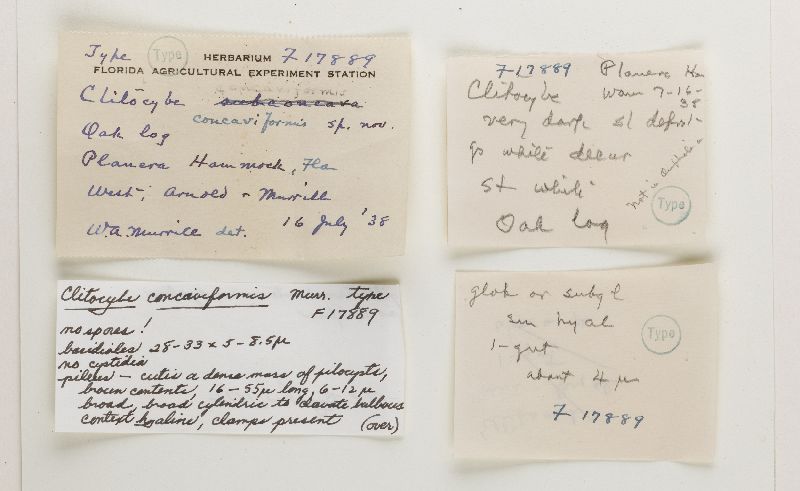 Type Type HERBARIUM F17889
FLORIDA AGRICULTURAL EXPERIMENT STATION
concaviformis
Clitocybe subconcava
concaviformis sp. nov.
Oak log
Planera Hammock, Fla
West, Arnold & Murrill
16 July '38
W.A. Murrill det.
F-17889 Planera Ham
Clitocybe warm 7-16-38
very dark sl depr-
gs white decur
st white
Oak log
Type
Clitocybe concaviformis Murr. type
F17889
no spores!
basidioles 28-33 x 5-8.5µ
no cystidia
pileus - cutis a dense mass of pilocysts,
brown contents, 16-55µ long, 6-12µ
broad, broad cylindric to clavate bulbous
context hyaline, clamps present (over)
glob or subgl
sm hyal
1-gut
about 4 µ
Type
F 17889